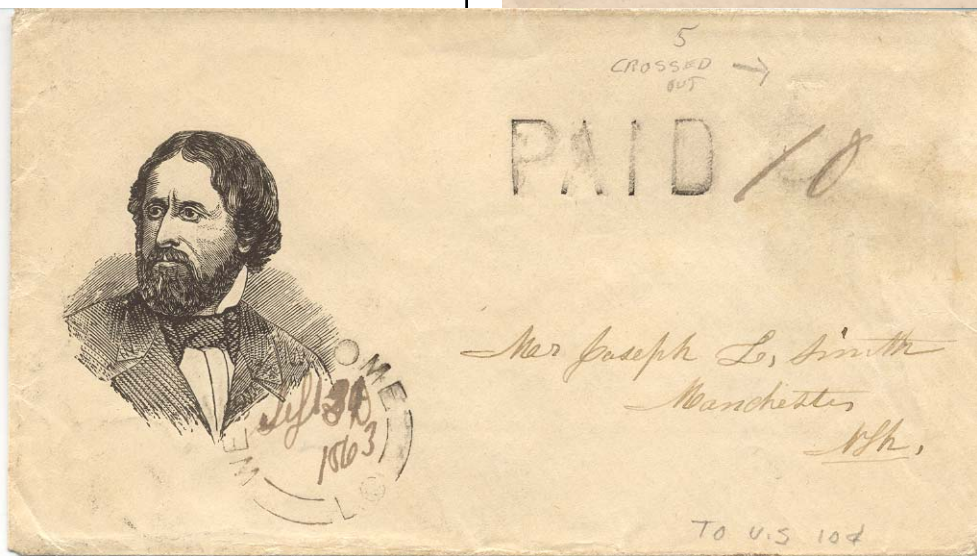 5
CROSSED →
OUT
PAID 10
Mer Joseph L. Smith
Manchester
NH.
1863
TO U.S 10¢